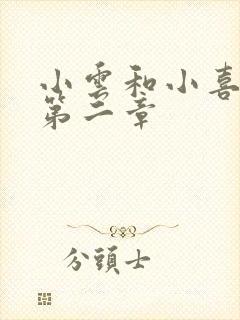 小雲和小喜
第二章
分頭士